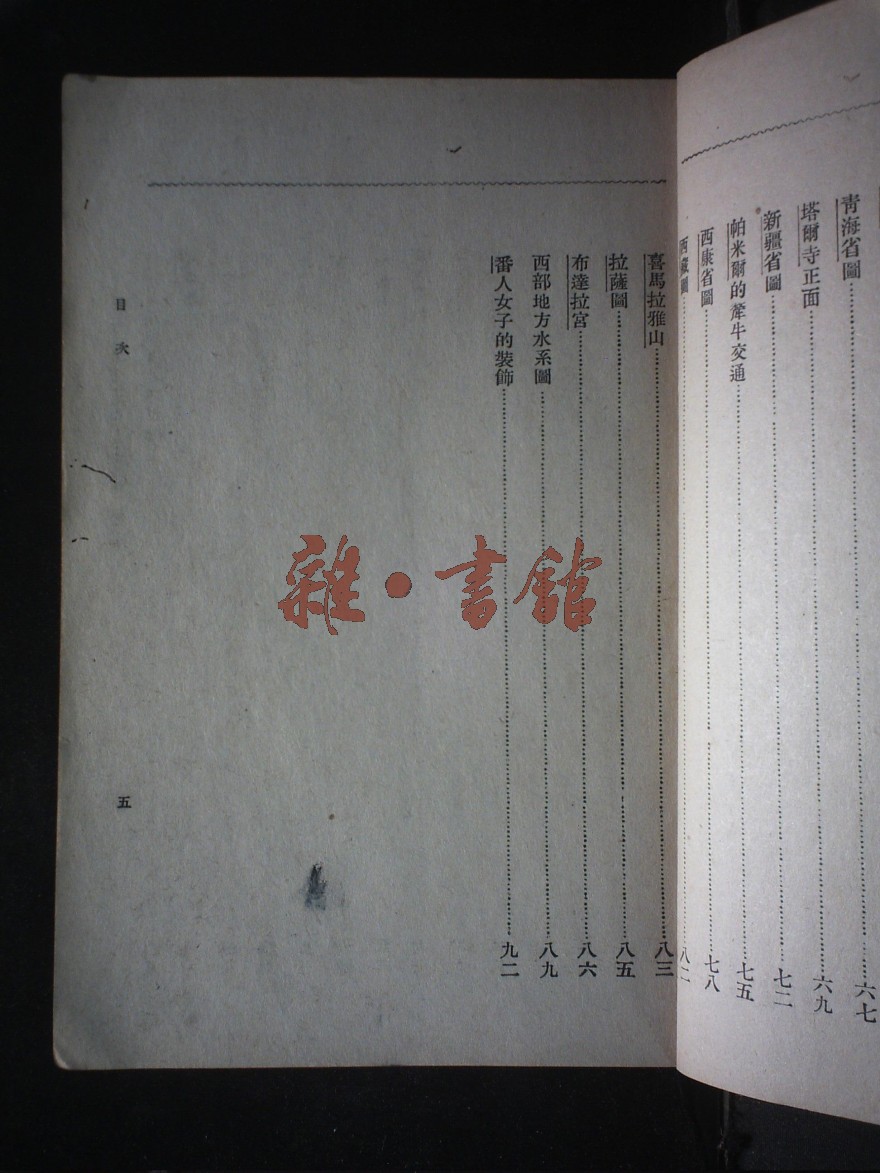 靑海省圖……六七
塔爾寺正面……六九
新疆省圖……七二
帕米爾的犛牛交通……七五
西康省圖……七八
西藏圖……八二
喜馬拉雅山……八三
拉薩圖……八五
布達拉宮……八六
西部地方水系圖……八九
番人女子的裝飾……九二
目次
五
雜·書館